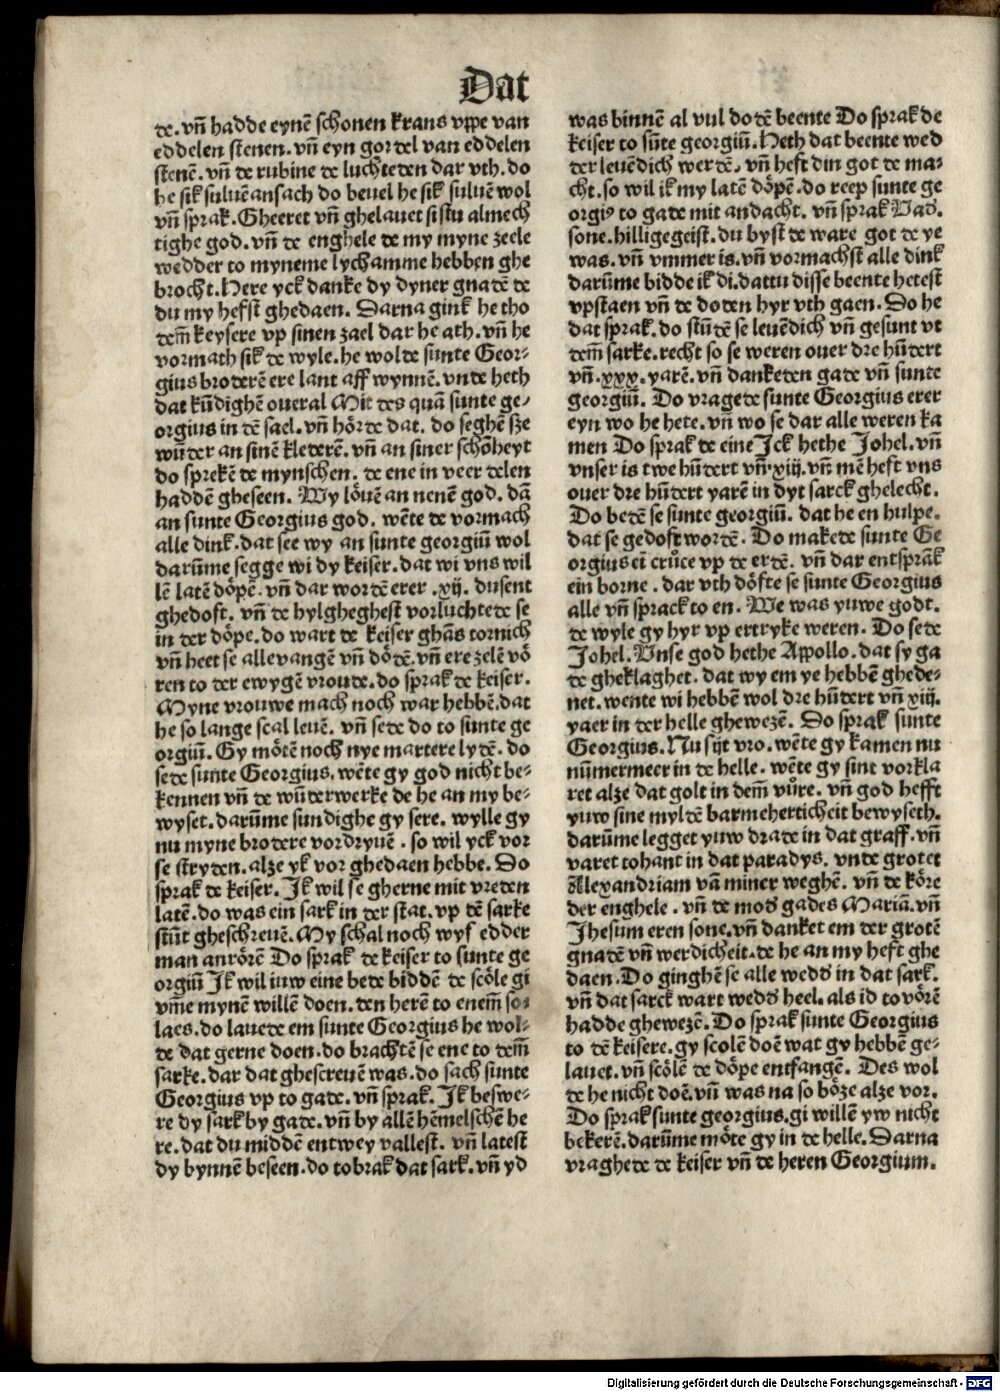 Dat
de. vn̄ hadde eynē schonen krans vppe van
eddelen stenen. vn̄ eyn gordel van eddelen
stenē. vn̄ de rubine de luchteden dar vth. do
he sik suluē ansach do beuel he sik suluē wol
vn̄ sprak. Gheeret vn̄ ghelauet sistu almech
tighe god. vn̄ de enghele de my myne zeele
wedder to myneme lychamme hebben ghe
brocht. Here yck danke dy dyner gnadē de
du my hefst ghedaen. Darna gink he tho
dem̄ keysere vp sinen zael dar he ath. vn̄ he
vormath sik de wyle. he wolde sunte Geor-
gius broderē ere lant aff wynnē. vnde heth
dat kūdighē oueral Mit des quā sunte ge-
orgius in dē sael. vn̄ hȫrde dat. do seghē sze
wūder an sinē klederē. vn̄ an siner schȫheyt
do sprekē de mynschen. de ene in veer delen
haddē gheseen. Wy lȫuē an nenē god. dā
an sunte Georgius god. wēte de vormach
alle dink. dat see wy an sunte georgiū wol
darūme segge wi dy keiser. dat wi vns wil
lē latē dȫpē. vn̄ dar wordē erer .xij. dusent
ghedoft. vn̄ de hylgheghest vorluchtede se
in der dȫpe. do wart de keiser ghās tornich
vn̄ heet se alle vangē vn̄ dȫdē. vn̄ ere zelē vȫ
ren to der ewygē vroude. do sprak de keiser.
Myne vrouwe mach noch war hebbē. dat
he so lange scal leuē. vn̄ sede do to sunte ge
orgiū. Gy mȫtē noch nye martere lydē. do
sede sunte Georgius. wēte gy god nicht be-
kennen vn̄ de wūderwerke de he an my be-
wyset. darūme sundighe gy sere. wylle gy
nu myne brodere vordryuē. so wil yck vor
se stryden. alze yk vor ghedaen hebbe. Do
sprak de keiser. Jk wil se gherne mit vreden
latē. do was ein sark in der stat. vp dē sarke
stūt gheschreuē. My schal noch wyf edder
man anrȫrē Do sprak de keiser to sunte ge
orgiū Jk wil iuw eine bede biddē de scȫle gi
vm̄e mynen willē doen. den herē to enem̄ so-
laes. do lauede em sunte Georgius he wol-
de dat gerne doen. do brachtē se ene to dem̄
sarke. dar dat ghescreuē was. do sach sunte
Georgius vp to gade. vn̄ sprak. Jk beswe-
re dy sark by gade. vn̄ by allē hēmelschē he
re. dat du middē entwey vallest. vn̄ latest
dy bynnē beseen. do tobrak dat sark. vn̄ yd
was binnē al vul dodē beente Do sprak de
keiser to sūte georgiū. Heth dat beente wed
der leuēdich werdē. vn̄ heft din got de ma-
cht. so wil ik my latē dȫpē. do reep sunte ge
orgiꝰ to gade mit andacht. vn̄ sprak Vad.
sone. hilligegeist. du byst de ware got de ye
was. vn̄ vmmer is. vn̄ vormachst alle dink
darūme bidde ik di. dattu disse beente hetest
vpstaen vn̄ de doden hyr vth gaen. Do he
dat sprak. do stūdē se leuēdich vn̄ gesunt vt
dem̄ sarke. recht so se weren ouer dre hūdert
vn̄ .xxx. yarē. vn̄ danketen gade vn̄ sunte
georgiū. Do vragede sunte Georgius erer
eyn wo he hete. vn̄ wo se dar alle weren ka
men Do sprak de eine Jck hethe Johel. vn̄
vnser is twe hūdert vn̄ xiij. vn̄ mē heft vns
ouer dre hūdert yarē in dyt sarck ghelecht.
Do bedē se sunte georgiū. dat he en hulpe.
dat se gedoft wordē. Do makede sunte Ge
orgius eī crůce vp de erdē. vn̄ dar entsprāk
ein borne. dar vth dȫfte se sunte Georgius
alle vn̄ sprack to en. We was yuwe godt.
de wyle gy hyr vp ertryke weren. Do sede
Johel. Vnse god hethe Appollo. dat sy ga
de gheklaghet. dat wy em ye hebbē ghede-
net. wente wi hebbē wol dre hūdert vn̄ xiij.
yaer in der helle ghewezē. Do sprak sunte
Georgius. Nu sijt vro. wēte gy kamen nu
nūmermeer in de helle. wēte gy sint vorkla
ret alze dat golt in dem̄ vůre. vn̄ god hefft
yuw sine myldē barmeherticheit bewyseth.
darūme legget yuw drade in dat graff. vn̄
varet tohant in dat paradys. vnde grotet
Alexandriam vā miner weghē. vn̄ de kȫre
der enghele. vn̄ de mod gades Mariā. vn̄
Jhesum eren sone. vn̄ danket em der grotē
gnadē vn̄ werdicheit. de he an my heft ghe
daen. Do ginghē se alle wedd in dat sark.
vn̄ dat sarck wart wedd heel. als id to vȫrē
hadde ghewezē. Do sprak sunte Georgius
to dē keisere. gy scolē doē wat gy hebbē ge-
lauet. vn̄ scȫlē de dȫpe entfangē. Des wol
de he nicht doē. vn̄ was na so bȫze alze vor.
Do sprak sunte georgius. gi willē yw nicht
bekerē. darūme mȫte gy in de helle. Darna
vraghede de keiser vn̄ de heren Georgium.
Digitalisierung gefördert durch die Deutsche Forschungsgemeinschaft - DFG